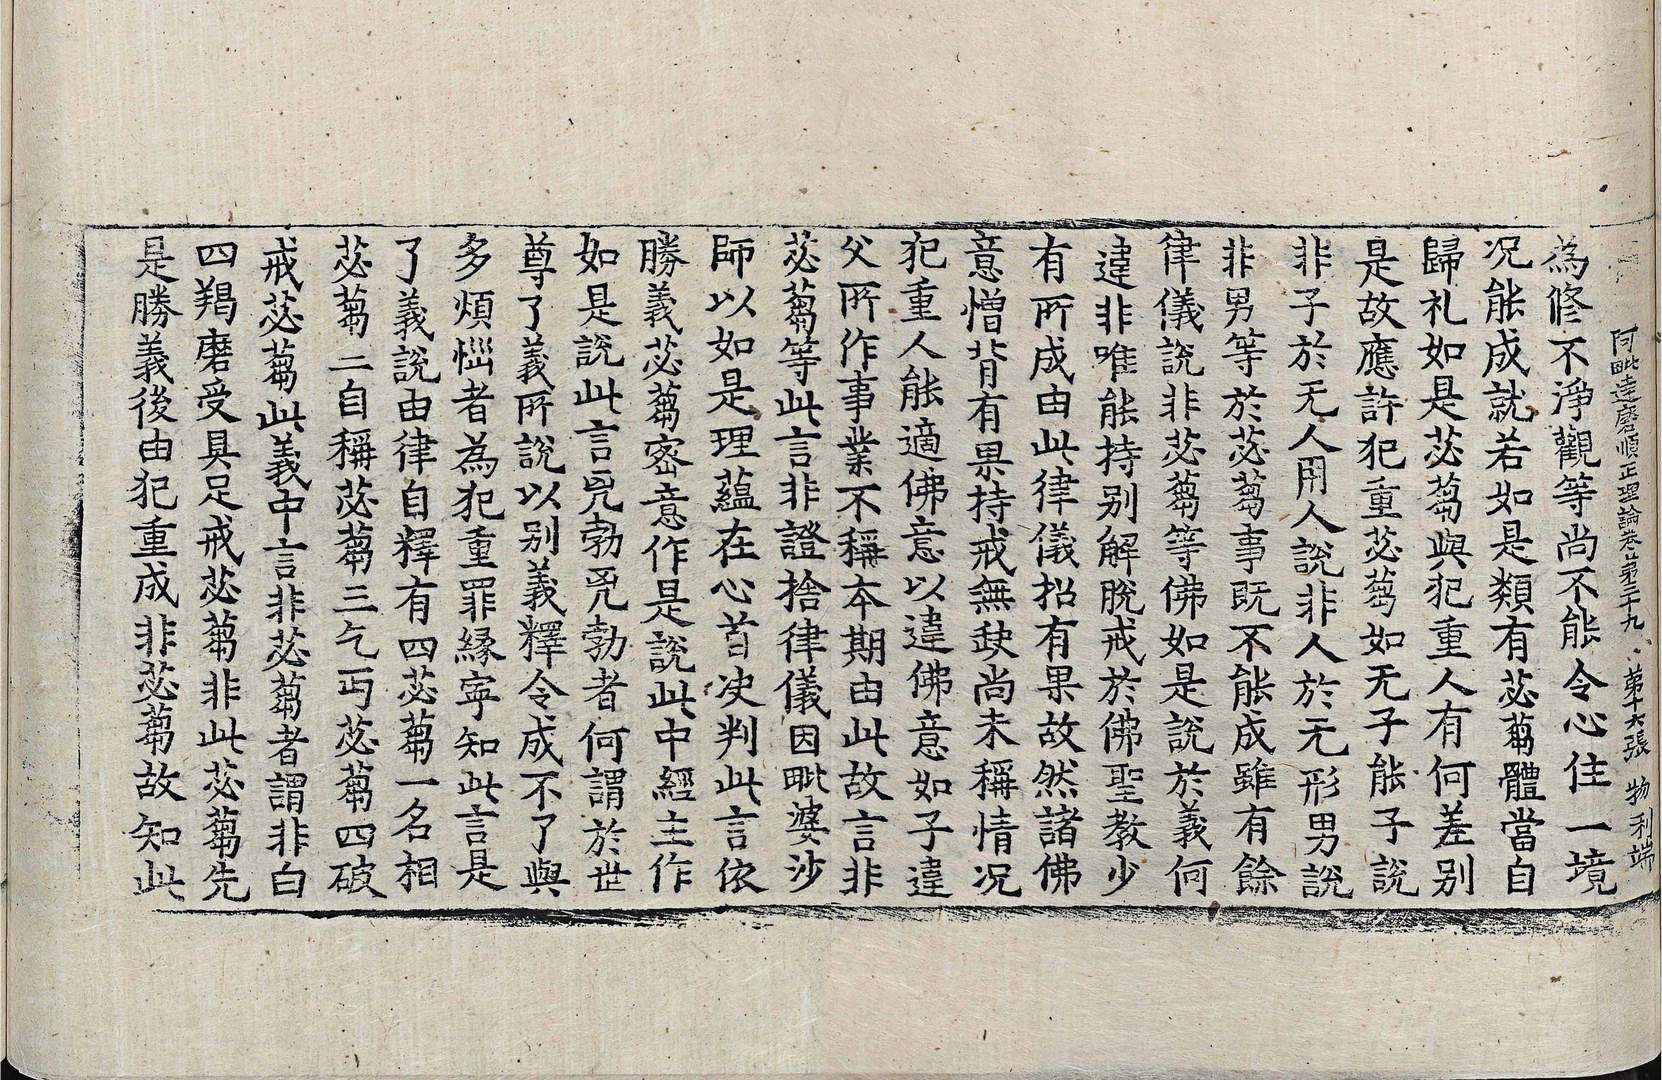 阿毗達磨順正理論卷第三十九 第十六張 物 利端
為修不淨觀等尚不能令心住一境
况能成就若如是類有苾蒭體當自
歸礼如是苾蒭與犯重人有何差别
是故應許犯重苾蒭如无子能子說
非子於无人用人說非人於无形男說
非男等於苾蒭事既不能成雖有餘
律儀說非苾蒭等佛如是說於義何
違非唯能持别解脫戒於佛聖教少
有所成由此律儀招有果故然諸佛
意憎背有果持戒無缺尚未稱情况
犯重人能適佛意以違佛意如子違
父所作事業不稱本期由此故言非
苾蒭等此言非證捨律儀因毗婆沙
師以如是理蘊在心首决判此言依
勝義苾蒭密意作是說此中經主作
如是說此言兇勃兇勃者何謂於世
尊了義所說以别義釋令成不了與
多煩惱者為犯重罪緣寧知此言是
了義說由律自釋有四苾蒭一名相
苾蒭二自稱苾蒭三乞丐苾蒭四破
戒苾蒭此義中言非苾蒭者謂非白
四羯磨受具足戒苾蒭非此苾蒭先
是勝義後由犯重成非苾蒭故知此